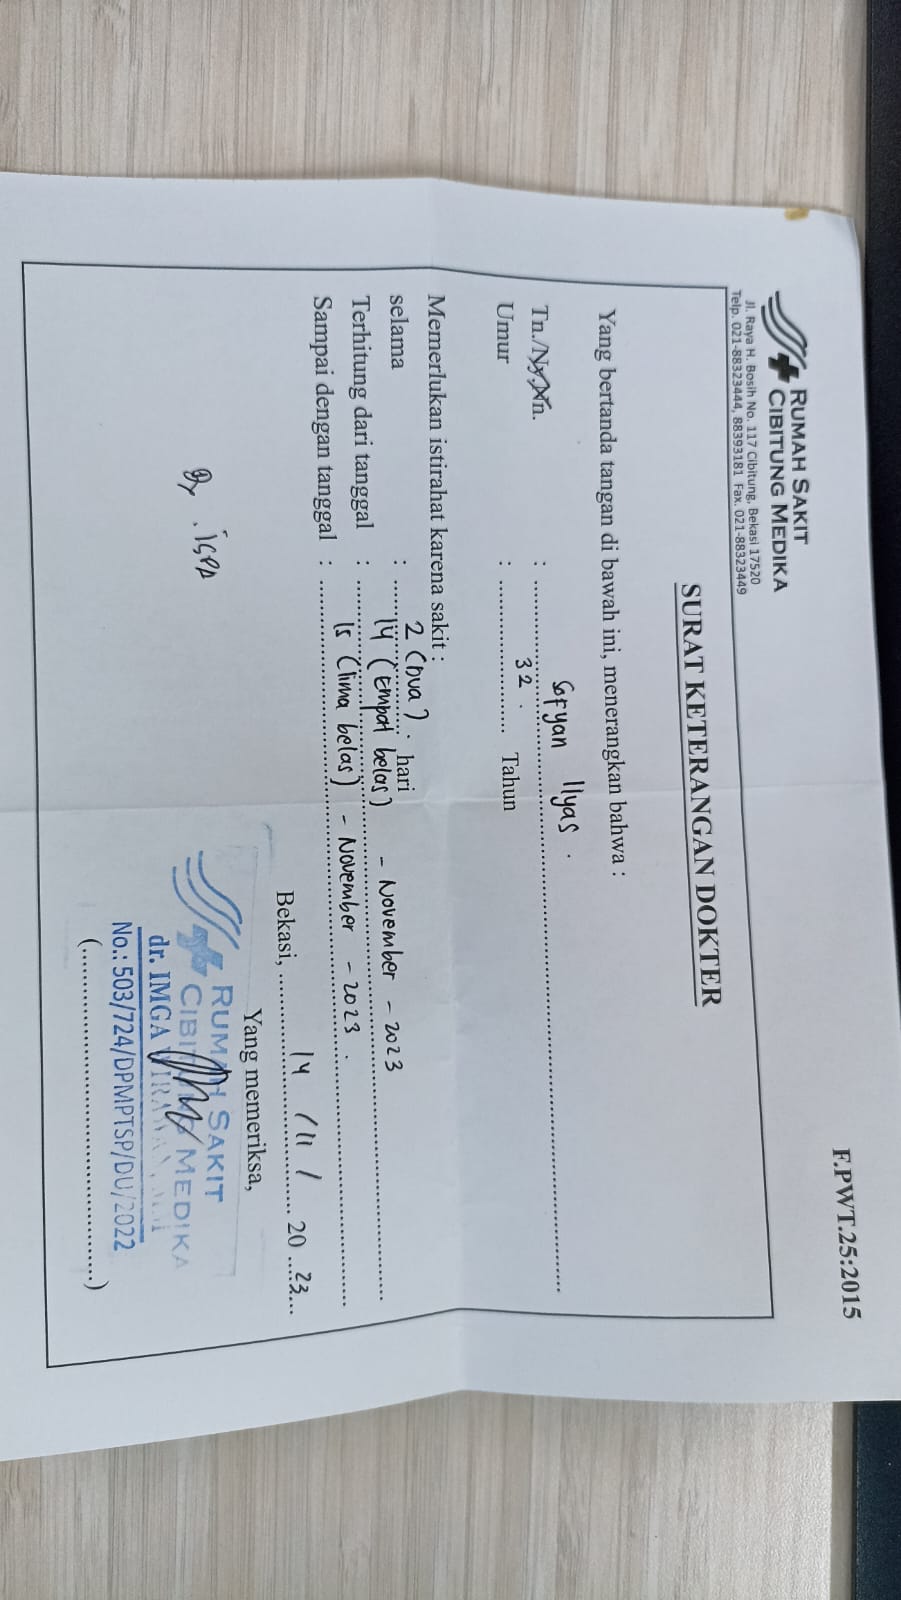 F.PWT.25:2015
RUMAH SAKIT
CIBITUNG MEDIKA
Jl. Raya H. Bosih No. 117 Cibitung, Bekasi 17520
Telp. 021-88323444, 88393181 Fax. 021-88323449
SURAT KETERANGAN DOKTER
Yang bertanda tangan di bawah ini, menerangkan bahwa :
Tn./Ny./An. : Sofyan Ilyas.
Umur : 32. Tahun
Memerlukan istirahat karena sakit :
selama : 2 (Dua). hari
Terhitung dari tanggal : 14 (Empat belas) - November - 2023
Sampai dengan tanggal : 15 (lima belas) - November - 2023.
Bekasi, 14 / 11 / 20 23
Yang memeriksa,
Dx. ISPA
RUMAH SAKIT
CIBITUNG MEDIKA
dr. IMGA
No.: 503/724/DPMPTSP/DU/2022
(..............................)